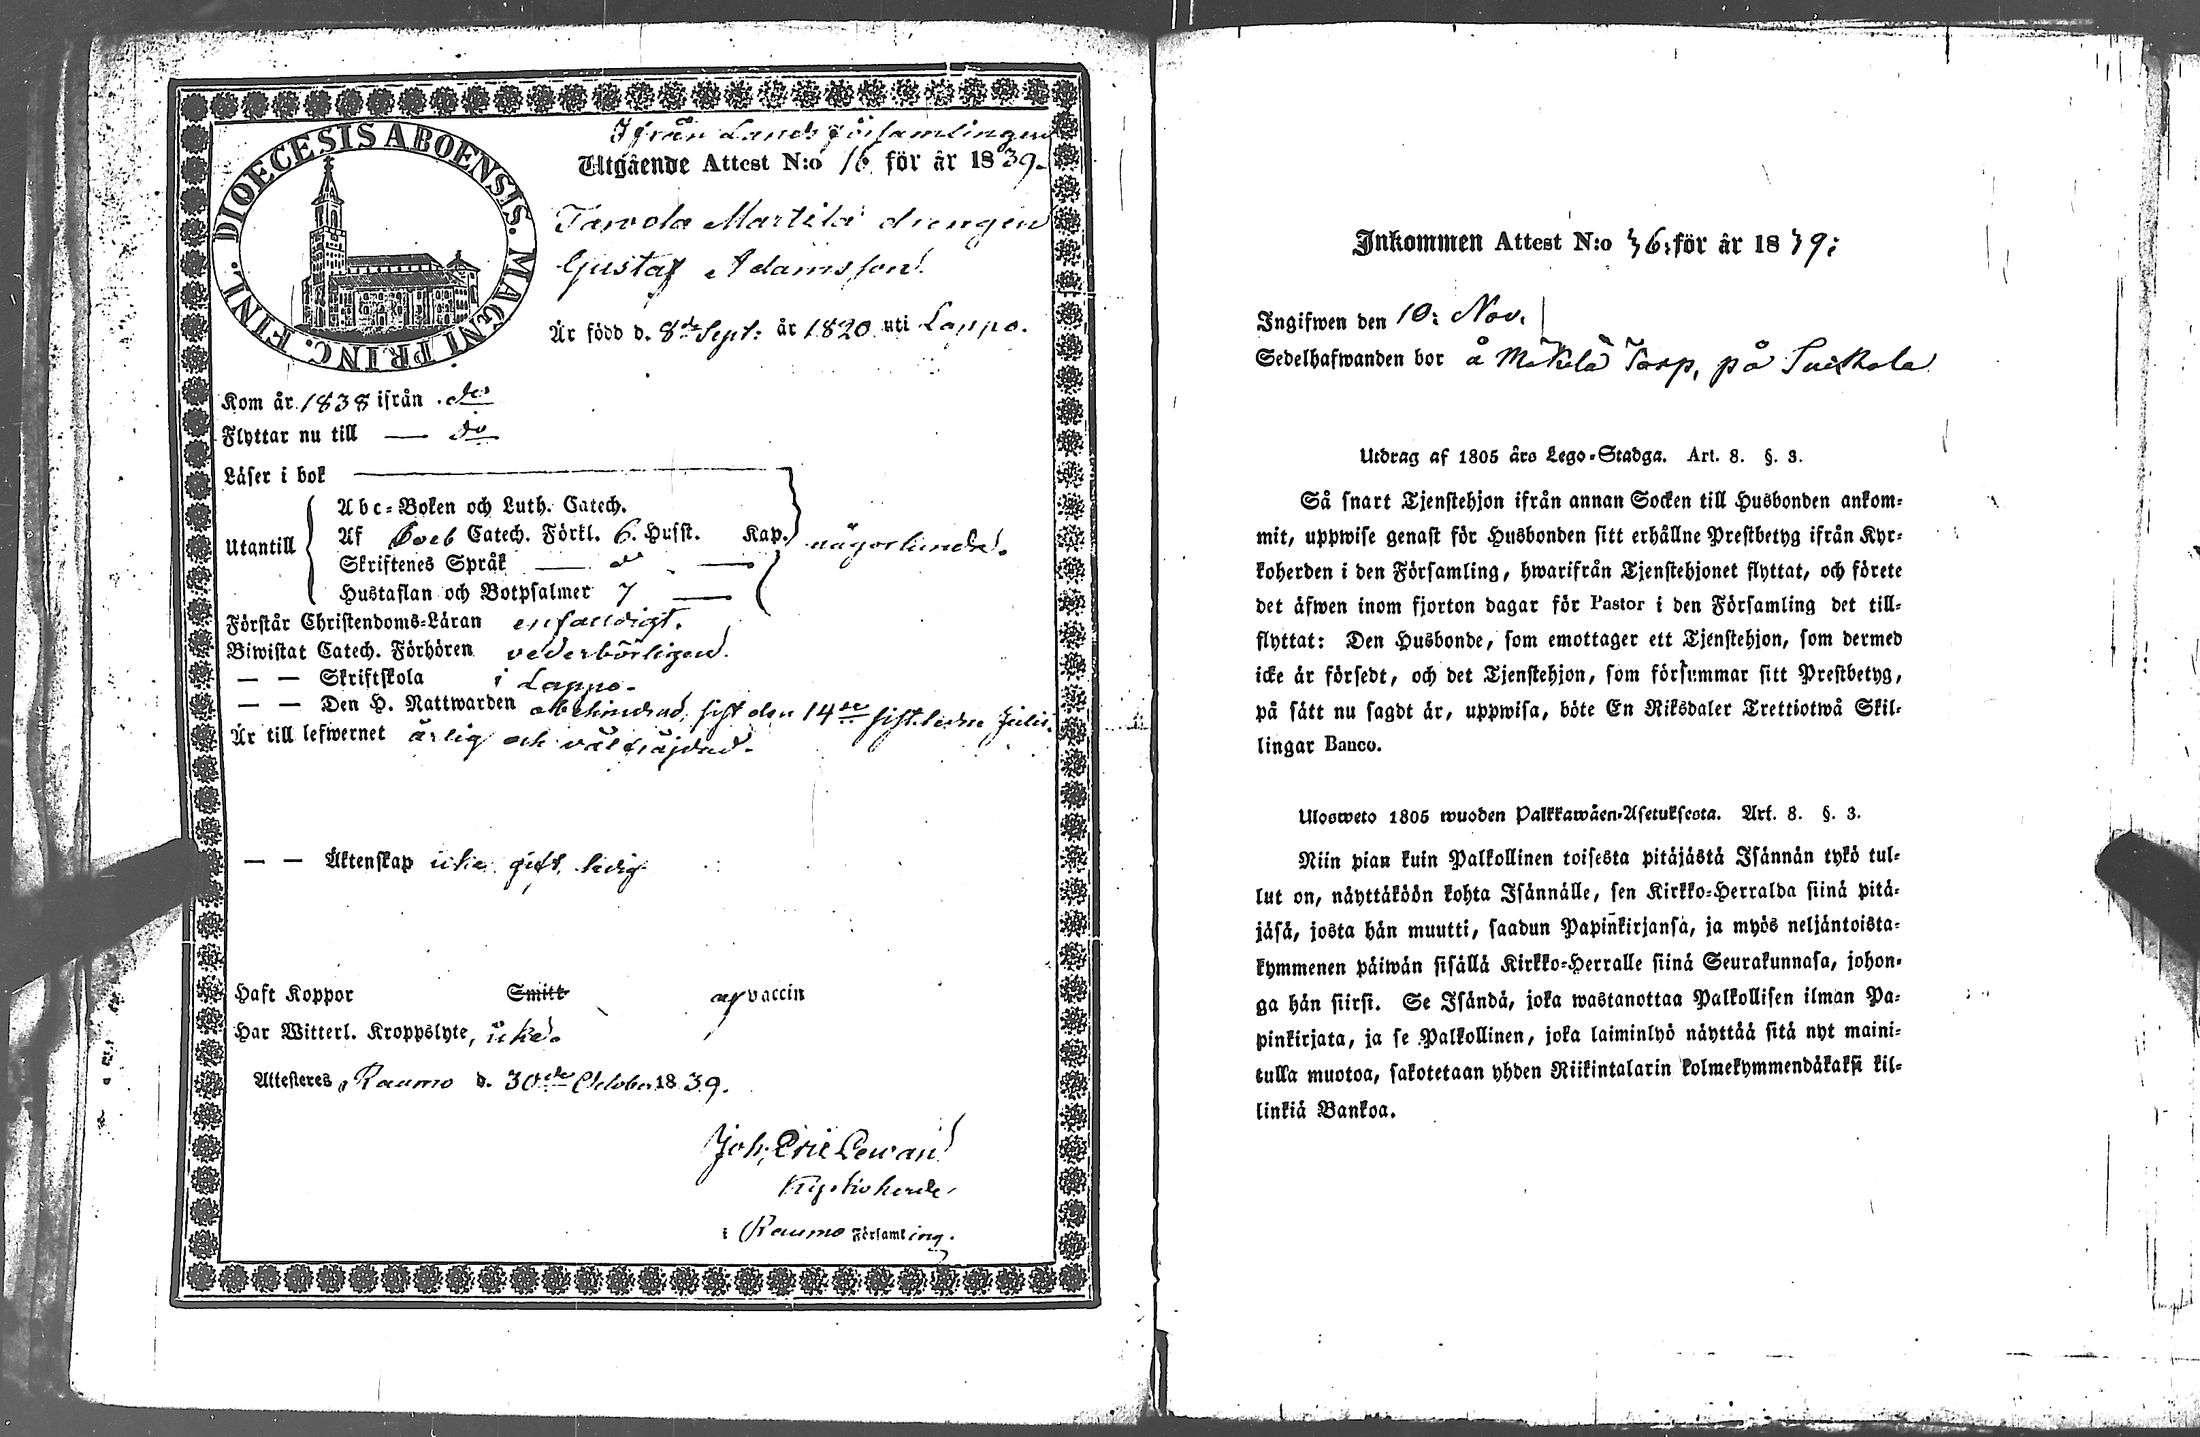 DIOECESIS ABOENSIS. MAGNI PRINC. FINL.
Ifrån Lands församlingen
Utgående Attest N:o 16 för år 1839.
Tarvola Martila drengen
Gustaf Adamsson
Är född d. 8de Sept: år 1820 uti Lappo.
Kom år 1838 ifrån do
Flyttar nu till — do
Läser i bok
Utantill
Abc-Boken och Luth. Catech.
Af Sveb Catech. Förkl. 6. Husst. Kap. någorlunda.
Skriftenes Språk
Hustaflan och Botpsalmer 7
Förstår Christendoms-Läran enfaldigt.
Biwistat Catech. Förhören vederbörligen
— — Skriftskola i Lappo.
— — Den H. Nattwarden obehindrad, sist den 14de sistledne Julii.
Är till lefwernet ärlig och väl fräjdad.
— — Äktenskap icke gift, ledig
Haft Koppor Smitt af vaccin
Har Witterl. Kroppslyte, icke.
Attesteres, Raumo d. 30de October 1839.
Joh. Eric Lewan
Kyrkoherde,
i Raumo Församling.
Inkommen Attest N:o 36: för år 1839:
Ingifwen den 10: Nov.
Sedelhafwanden bor å Mäkelä Torp, på Suikola
Utdrag af 1805 års Lego-Stadga. Art. 8. §. 3.
Så snart Tjenstehjon ifrån annan Socken till Husbonden ankom-
mit, uppwise genast för Husbonden sitt erhållne Prestbetyg ifrån Kyr-
koherden i den Församling, hwarifrån Tjenstehjonet flyttat, och förete
det äfwen inom fjorton dagar för Pastor i den Församling det till-
flyttat: Den Husbonde, som emottager ett Tjenstehjon, som dermed
icke är försedt, och det Tjenstehjon, som försummar sitt Prestbetyg,
på sätt nu sagdt är, uppwisa, böte En Riksdaler Trettiotwå Skil-
lingar Banco.
Ulosweto 1805 wuoden Palkkawäen-Asetuksesta. Art. 8. §. 3.
Niin pian kuin Palkollinen toisesta pitäjästä Isännän tykö tul-
lut on, näyttäköön kohta Isännälle, sen Kirkko-Herralda siinä pitä-
jäsä, josta hän muutti, saadun Papinkirjansa, ja myös neljäntoista-
kymmenen päiwän sisällä Kirkko-Herralle siinä Seurakunnasa, johon-
ga hän siirsi. Se Isändä, joka wastanottaa Palkollisen ilman Pa-
pinkirjata, ja se Palkollinen, joka laiminlyö näyttää sitä nyt maini-
tulla muotoa, sakotetaan yhden Riikintalarin kolmekymmendäkaksi kil-
linkiä Bankoa.